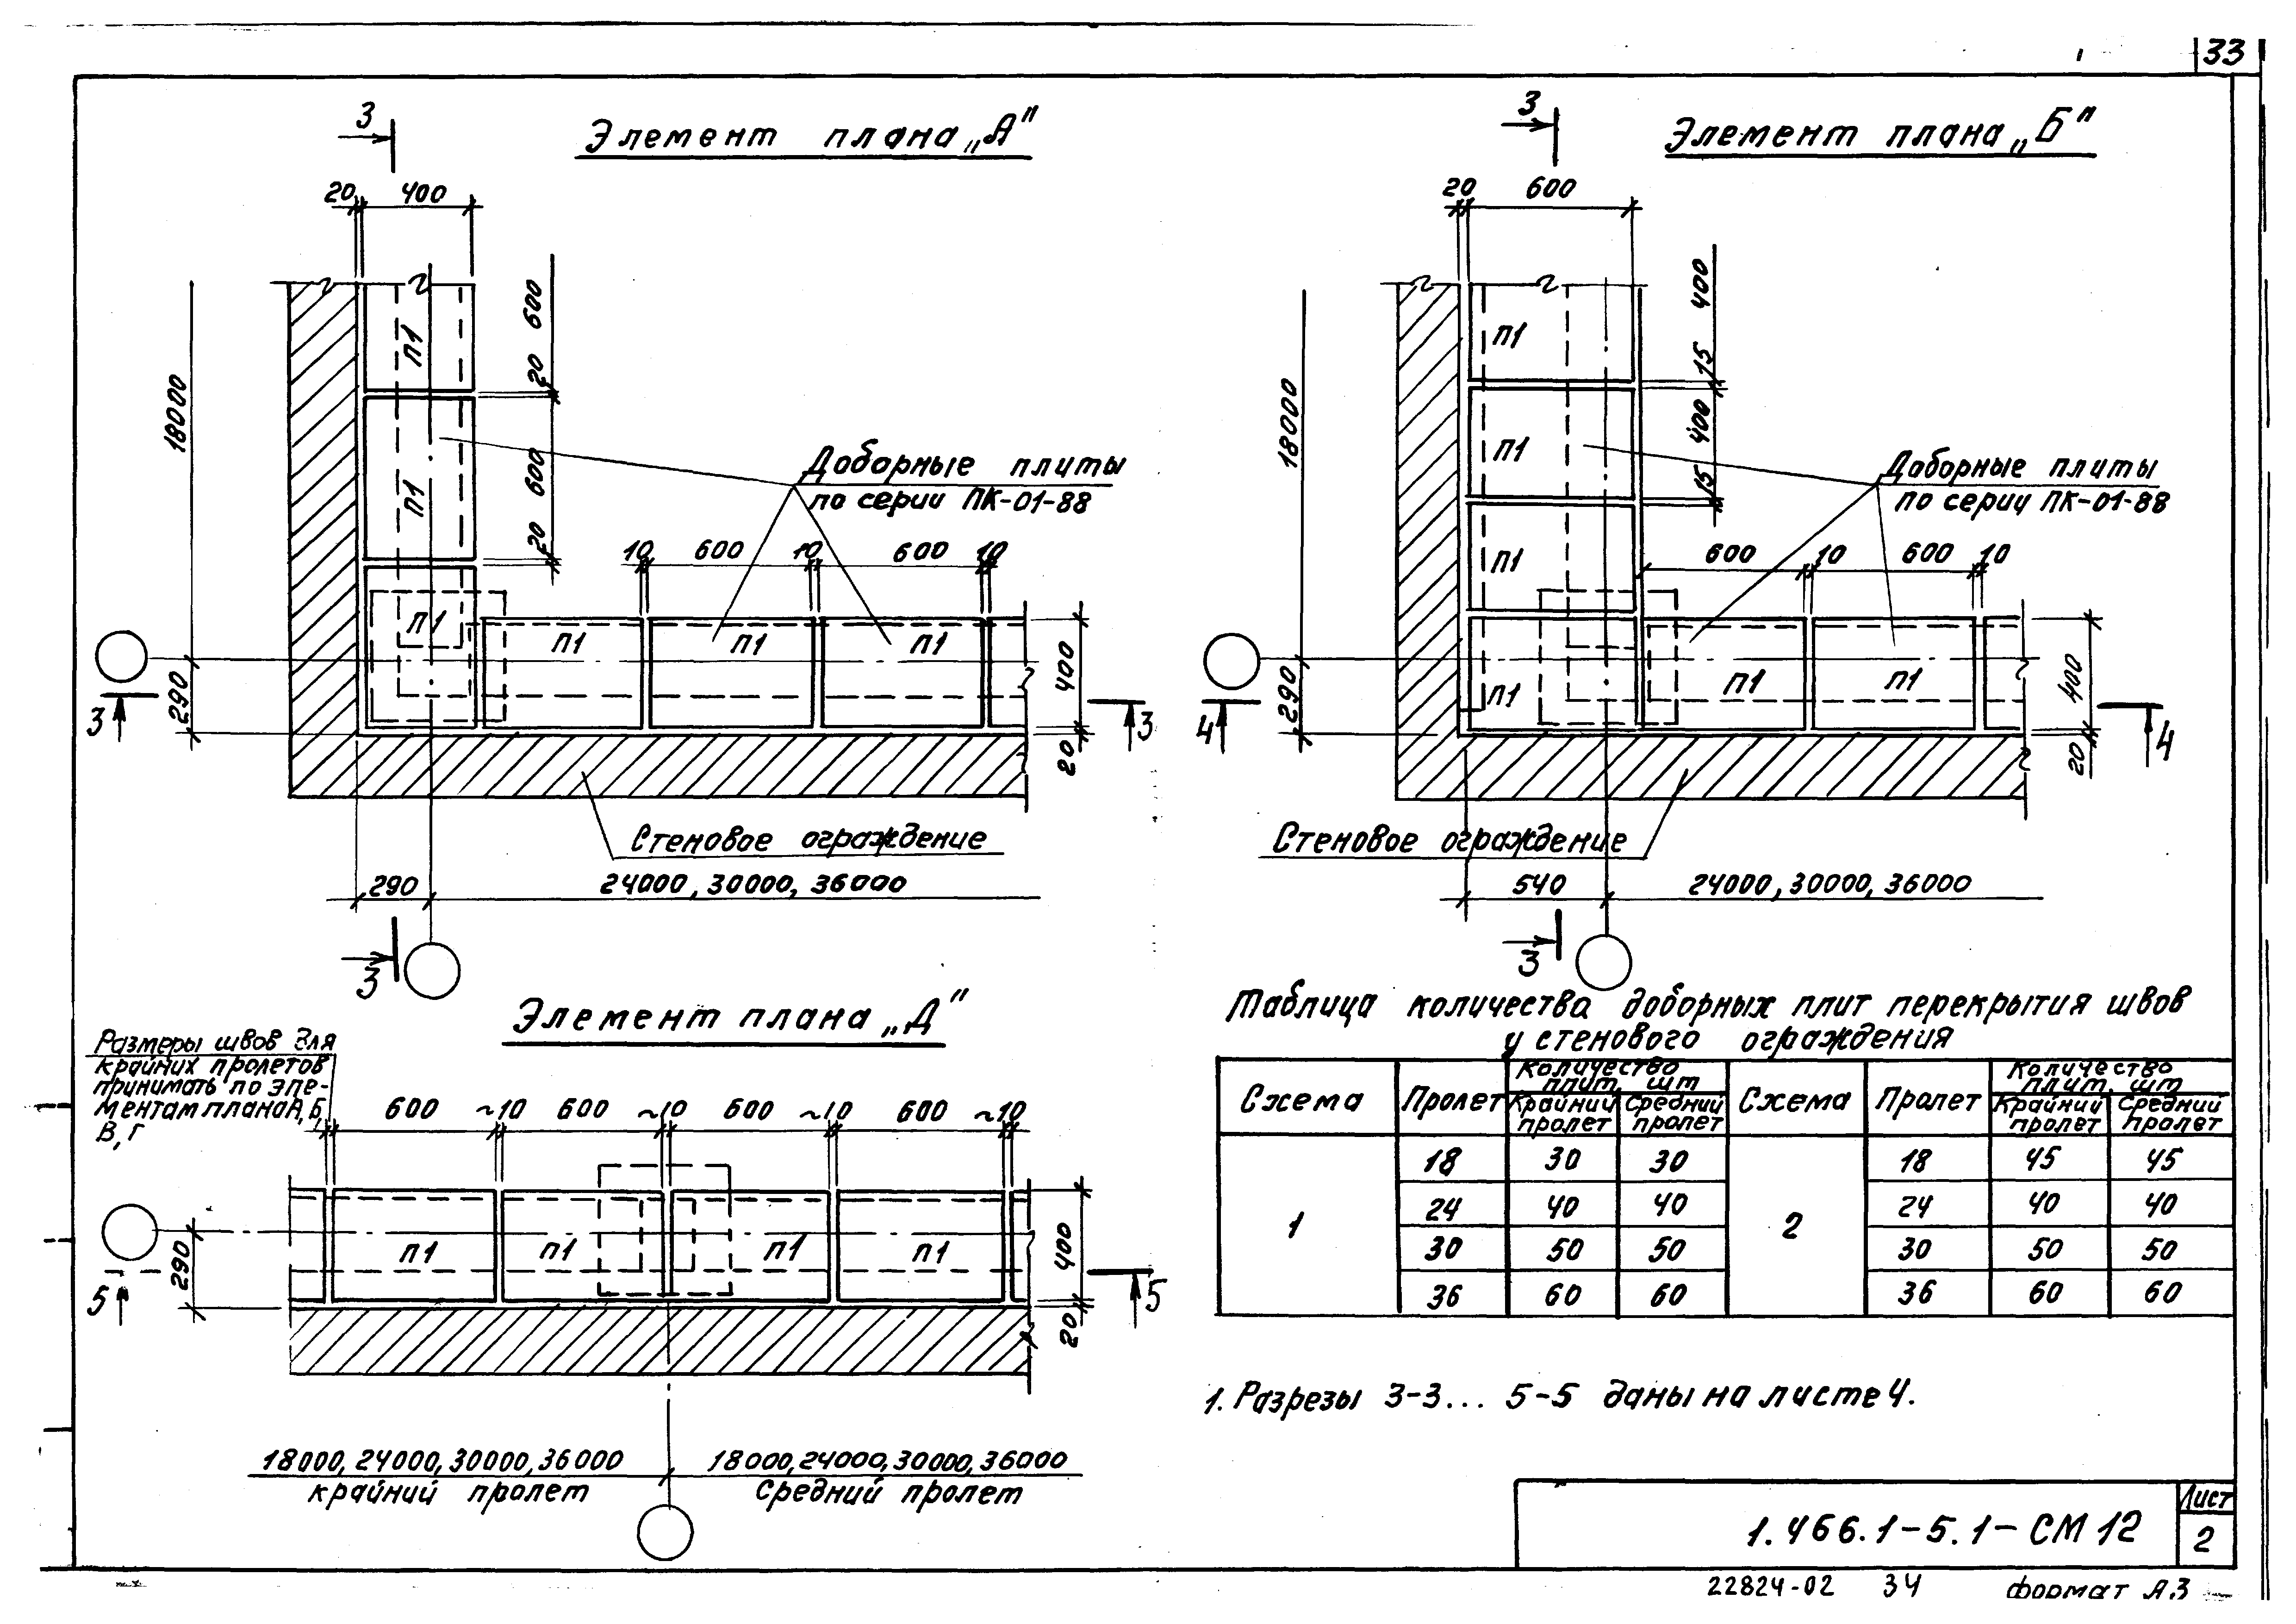 33
Элемент плана „А"
3
20 400
18000
290
20 600
20 600
П1
П1
П1
П1
П1
П1
10 600 10 600 10
Доборные плиты
по серии ПК-01-88
400
20
3
3
Стеновое ограждение
290 24000, 30000, 36000
3
Элемент плана „Б"
3
20 600
18000
290
15 400
15 400
П1
П1
П1
П1
П1
П1
600 10 600 10
Доборные плиты
по серии ПК-01-88
400
20
4
4
Стеновое ограждение
540 24000, 30000, 36000
3
Элемент плана „Д"
Размеры швов для
крайних пролетов
принимать по эле-
ментам плана А, Б,
В, Г
600 ~10 600 ~10 600 ~10 600 ~10
П1 П1 П1 П1
290
400
20
5
5
18000, 24000, 30000, 36000
крайний пролет
18000, 24000, 30000, 36000
Средний пролет
Таблица количества доборных плит перекрытия швов
у стенового ограждения
Схема Пролет Количество плит, шт Схема Пролет Количество плит, шт
Крайний пролет Средний пролет Крайний пролет Средний пролет
1 2
18 30 30 18 45 45
24 40 40 24 40 40
30 50 50 30 50 50
36 60 60 36 60 60
1. Разрезы 3-3... 5-5 даны на листе 4.
1.466.1-5.1-СМ12
Лист
2
22824-02 34 формат А3